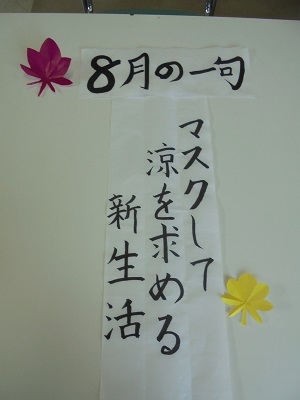 8月の一句
マスクして
涼を求める
新生活